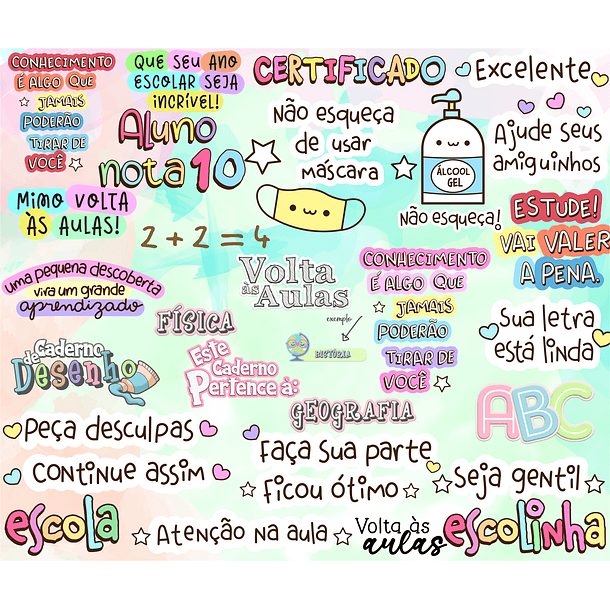 CONHECIMENTO
É ALGO QUE
JAMAIS
PODERÃO
TIRAR DE
VOCÊ
QUE SEU ANO
ESCOLAR SEJA
INCRÍVEL!
CERTIFICADO
Excelente
Aluno
nota 10
Não esqueça
de usar
máscara
ÁLCOOL
GEL
Não esqueça!
Ajude seus
amiguinhos
MIMO VOLTA
ÀS AULAS!
2 + 2 = 4
ESTUDE!
VAI VALER
A PENA.
uma pequena descoberta
vira um grande
aprendizado
Volta
às Aulas
exemplo
HISTÓRIA
FÍSICA
CONHECIMENTO
É ALGO QUE
JAMAIS
PODERÃO
TIRAR DE
VOCÊ
Sua letra
está linda
Caderno
de Desenho
Este
Caderno
Pertence à:
GEOGRAFIA
ABC
Peça desculpas
Continue assim
Faça sua parte
Ficou ótimo
Seja gentil
escola
Atenção na aula
Volta às
aulas
escolinha